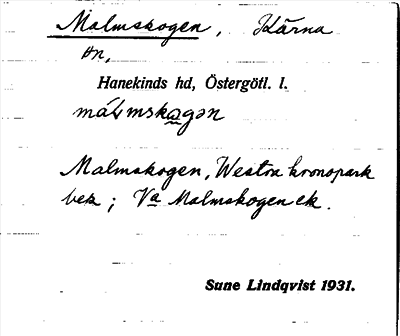 Malmskogen, Kärna
sn,
Hanekinds hd, Östergötl. l.
málmskogən
Malmskogen, Westra kronopark
bek; Va Malmskogen ek.
Sune Lindqvist 1931.